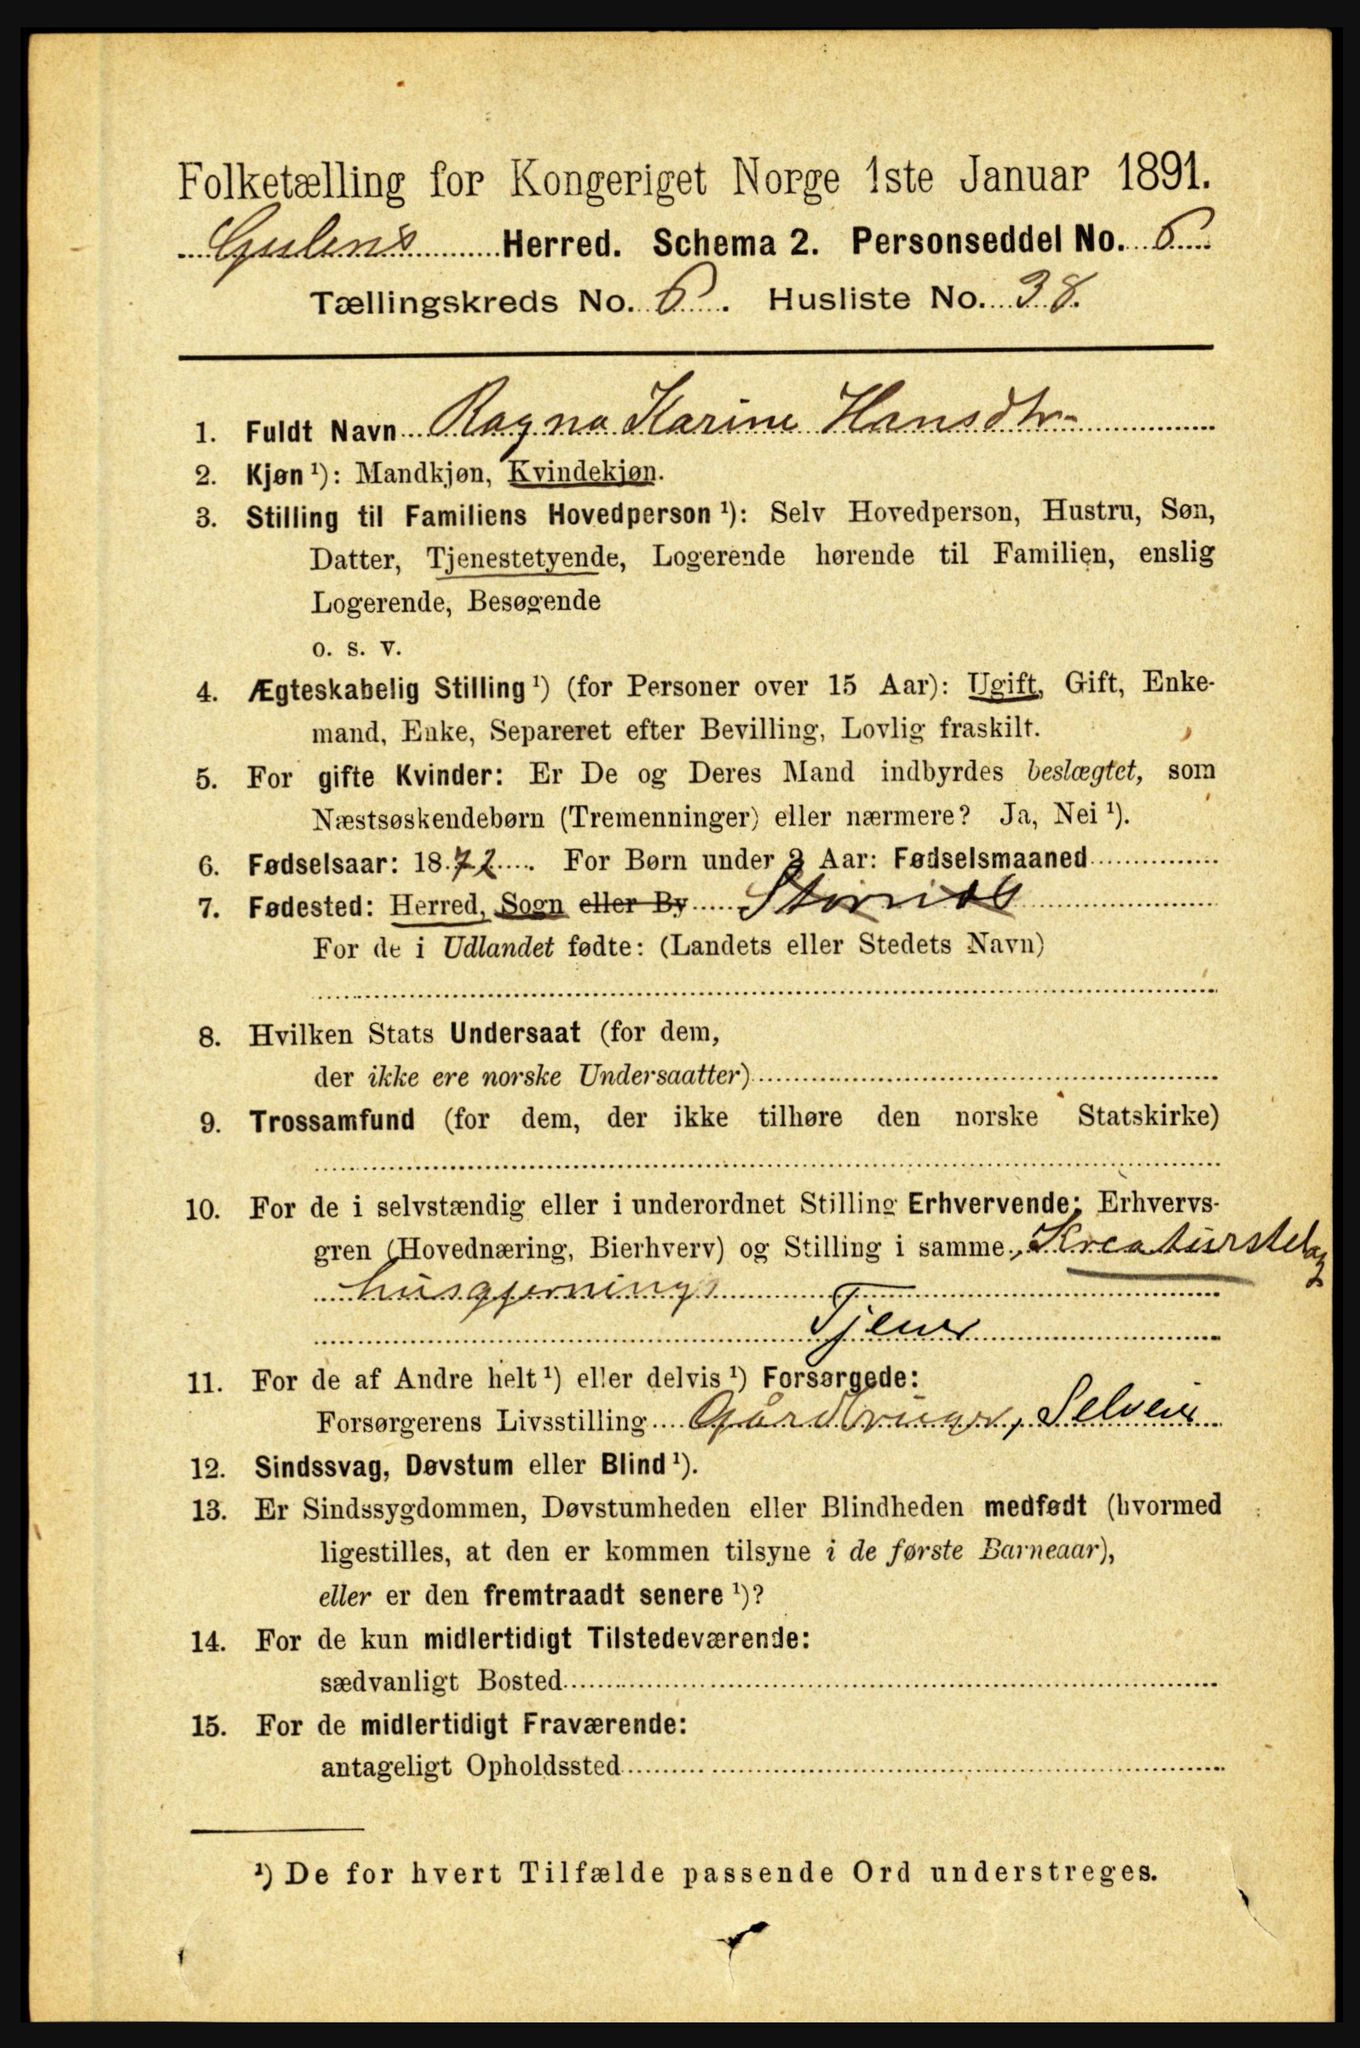 Folketælling for Kongeriget Norge 1ste Januar 1891.
Gulens Herred. Schema 2. Personseddel No. 6
Tællingskreds No. 6. Husliste No. 38.
1. Fuldt Navn Ragna Karine Hansdtr
2. Kjøn ¹): Mandkjøn, Kvindekjøn.
3. Stilling til Familiens Hovedperson ¹): Selv Hovedperson, Hustru, Søn,
Datter, Tjenestetyende, Logerende hørende til Familien, enslig
Logerende, Besøgende
o. s. v.
4. Ægteskabelig Stilling ¹) (for Personer over 15 Aar): Ugift, Gift, Enke-
mand, Enke, Separeret efter Bevilling, Lovlig fraskilt.
5. For gifte Kvinder: Er De og Deres Mand indbyrdes beslægtet, som
Næstsøskendebørn (Tremenninger) eller nærmere? Ja, Nei ¹).
6. Fødselsaar: 1872. For Børn under 2 Aar: Fødselsmaaned
7. Fødested: Herred, Sogn eller By
For de i Udlandet fødte: (Landets eller Stedets Navn)
8. Hvilken Stats Undersaat (for dem,
der ikke ere norske Undersaatter)
9. Trossamfund (for dem, der ikke tilhøre den norske Statskirke)
10. For de i selvstændig eller i underordnet Stilling Erhvervende: Erhvervs-
gren (Hovednæring, Bierhverv) og Stilling i samme, Kreaturstel og
husgjerning
Tjener
11. For de af Andre helt ¹) eller delvis ¹) Forsørgede:
Forsørgerens Livsstilling Gårdbruger, Selveier
12. Sindssvag, Døvstum eller Blind ¹).
13. Er Sindssygdommen, Døvstumheden eller Blindheden medfødt (hvormed
ligestilles, at den er kommen tilsyne i de første Barneaar),
eller er den fremtraadt senere ¹)?
14. For de kun midlertidigt Tilstedeværende:
sædvanligt Bosted
15. For de midlertidigt Fraværende:
antageligt Opholdssted
¹) De for hvert Tilfælde passende Ord understreges.